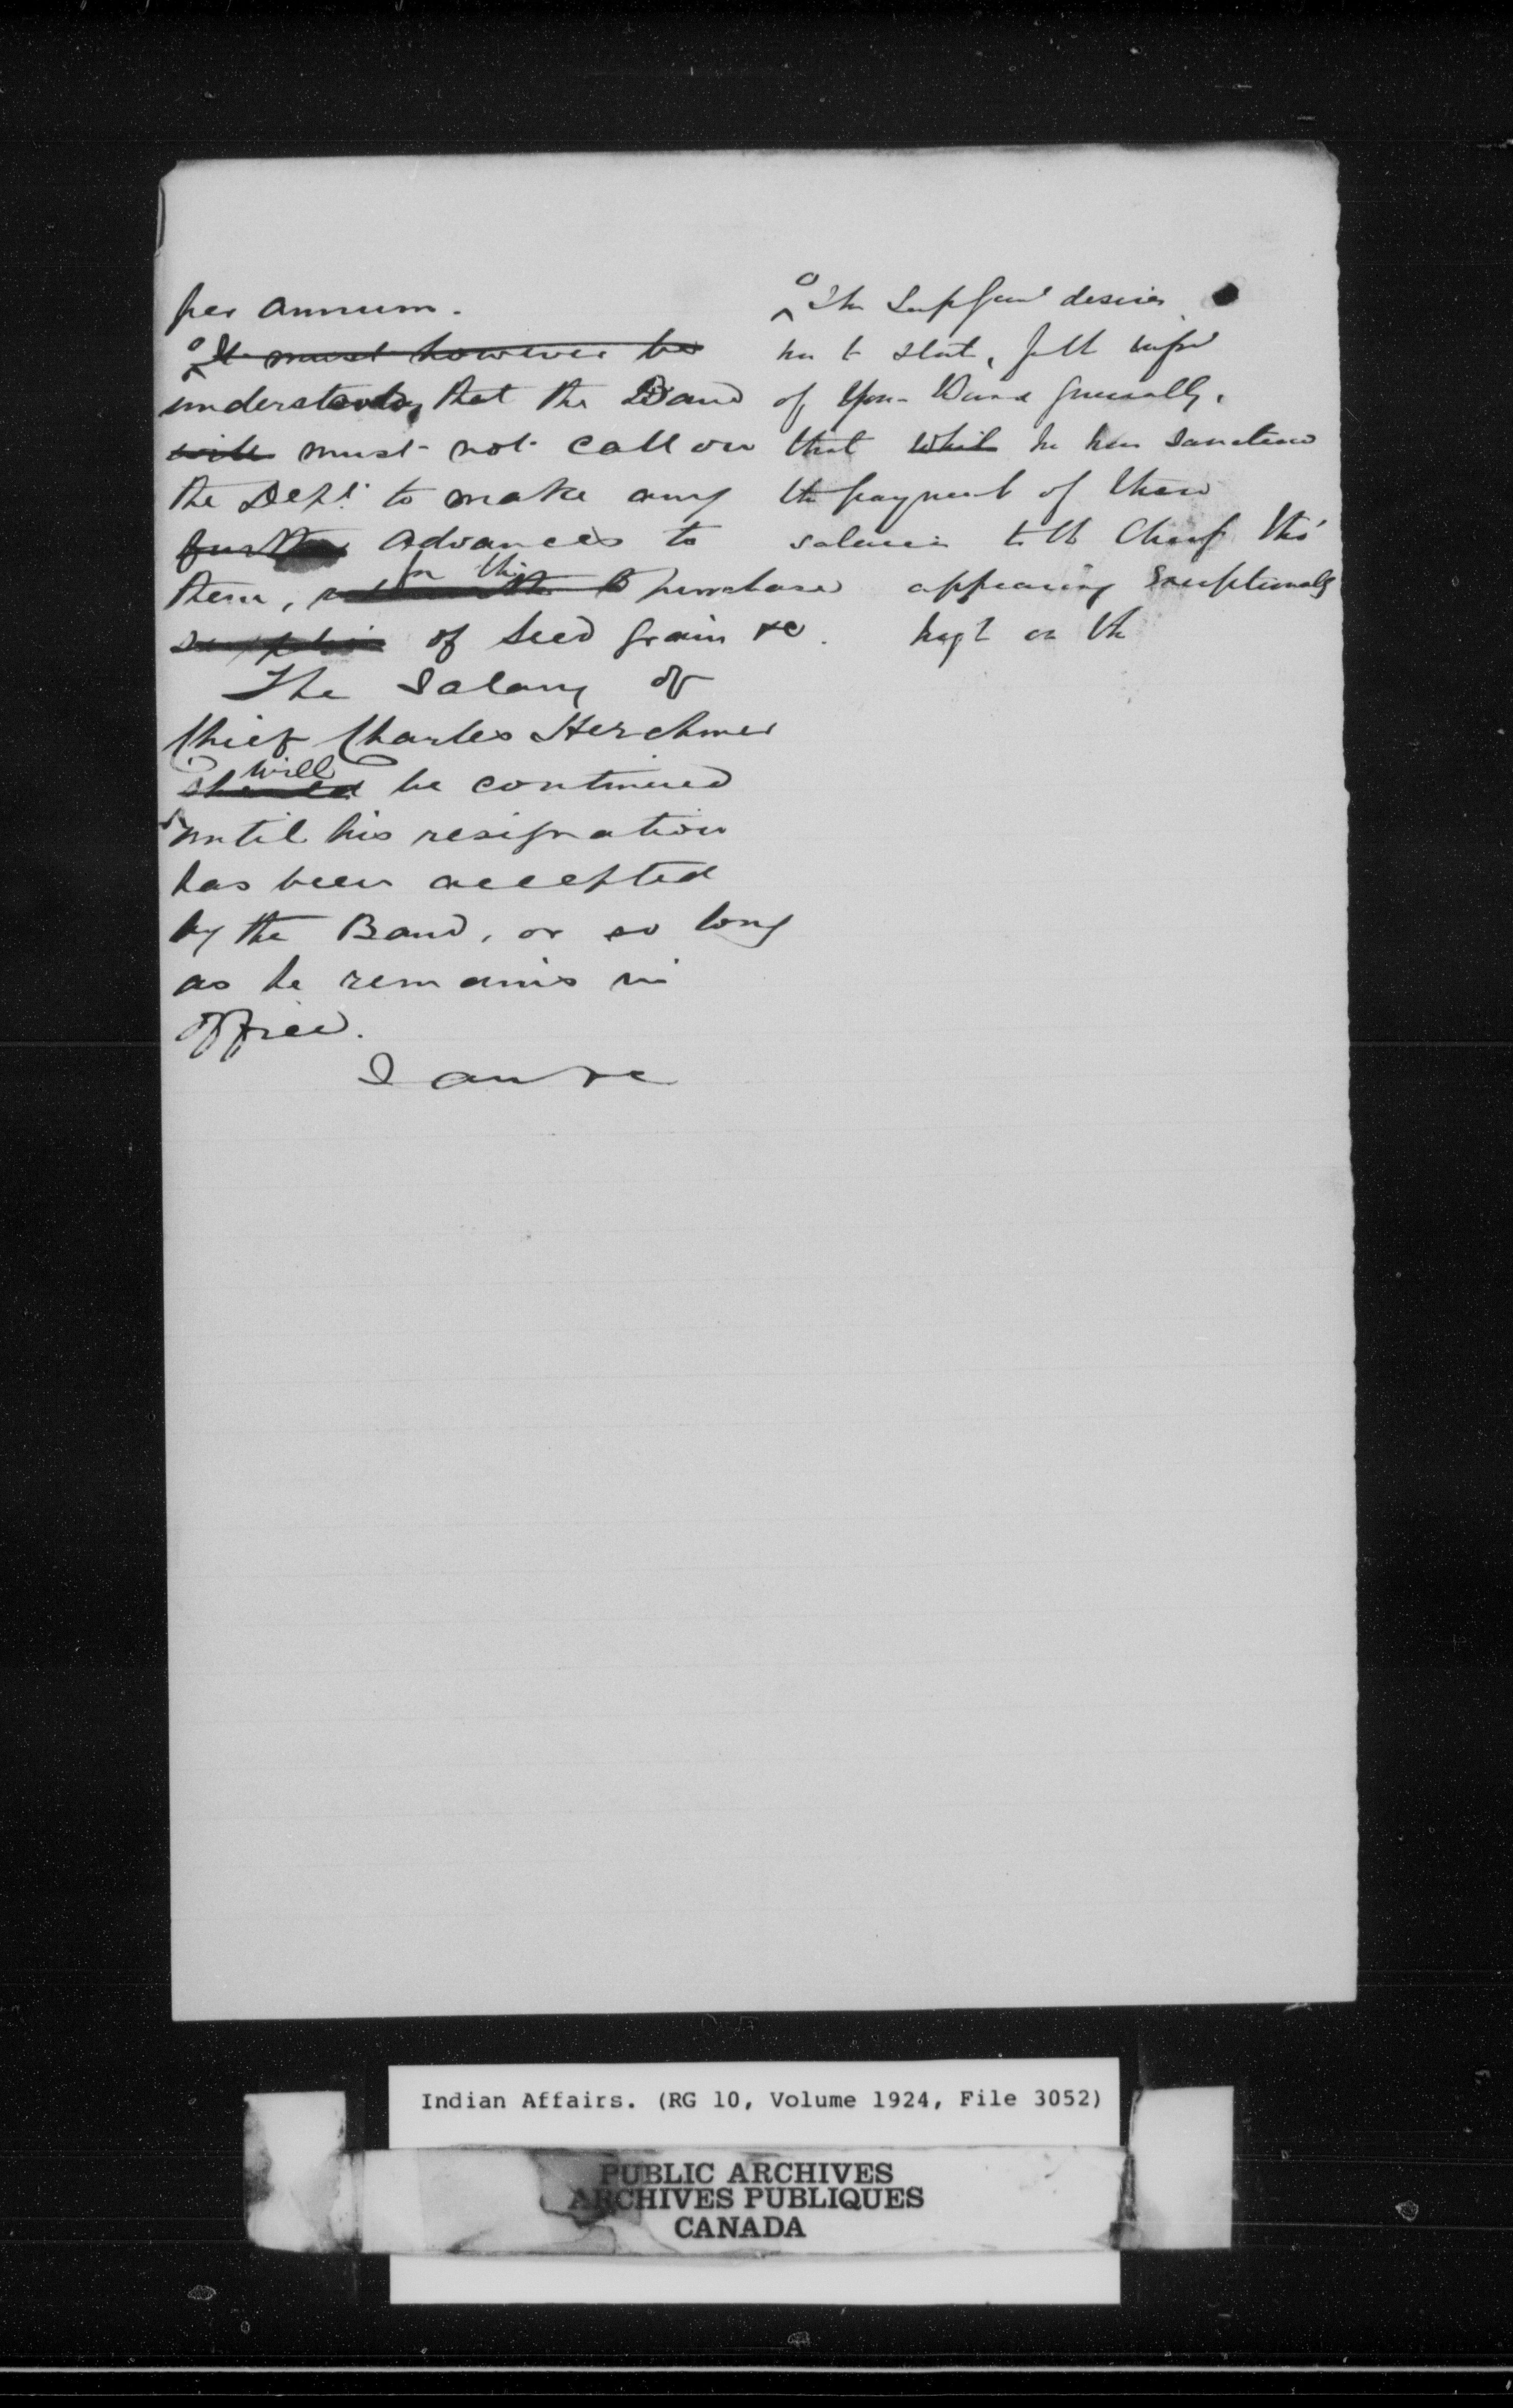 per annum.
It must however be
understood, that the Band
will must not call on
the Dept. to make any
further advances to
them, for the purchase
supplies of seed grain &c.
The Salary of
Chief Charles Herchmer
should will be continued
until his resignation
has been accepted
by the Band, or so long
as he remains in
office.
I am &c
The Supt Genl desires
me to state, for the infn
of your Band generally,
that while he has sanctioned
the payment of these
salaries to the Chiefs tho'
appearing exceptionally
high on the
Indian Affairs. (RG 10, Volume 1924, File 3052)
PUBLIC ARCHIVES
ARCHIVES PUBLIQUES
CANADA